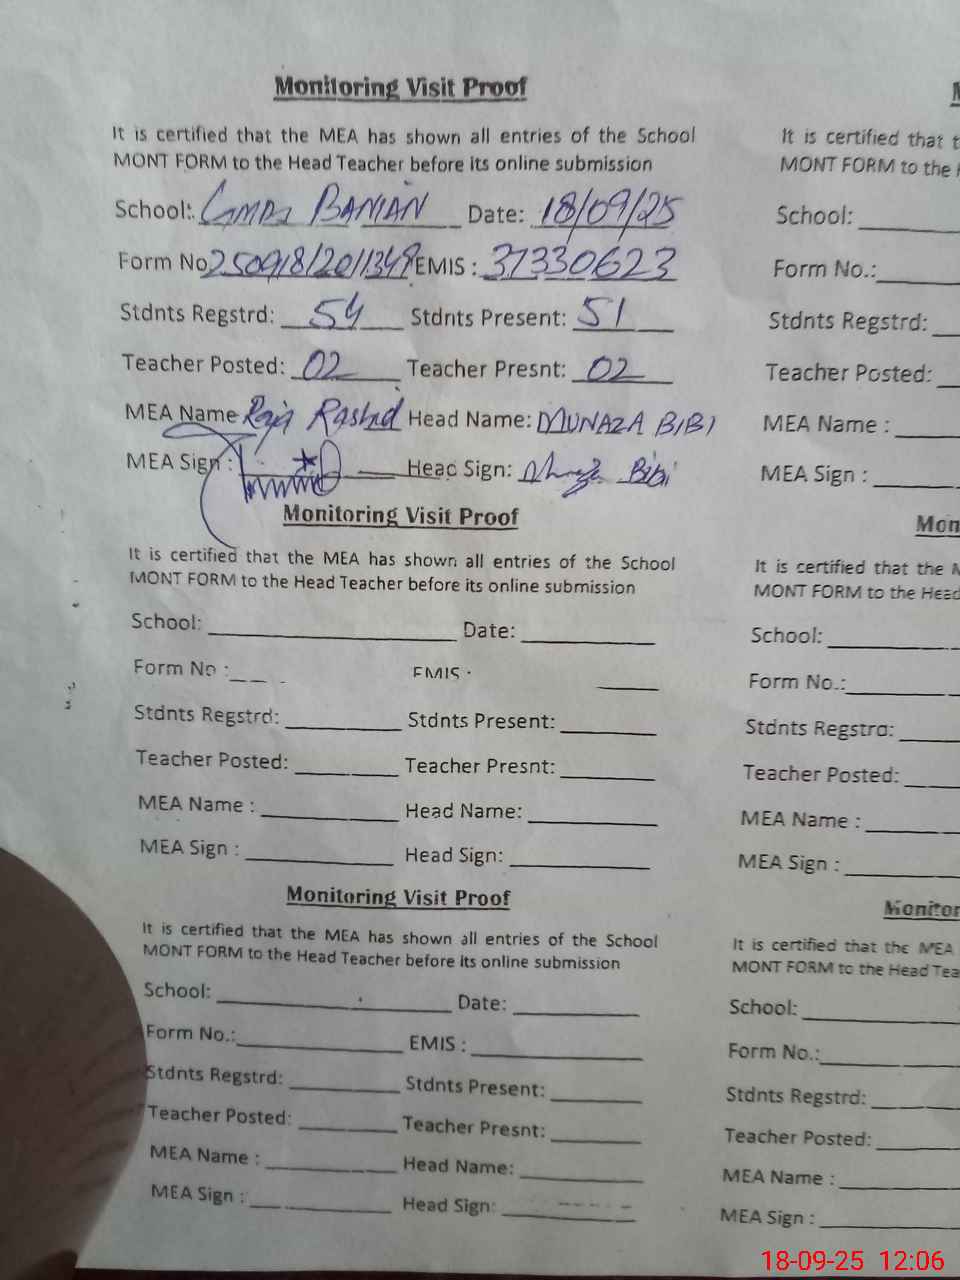 Monitoring Visit Proof
It is certified that the MEA has shown all entries of the School
MONT FORM to the Head Teacher before its online submission
School: BANIAN Date: 18/09/25
Form No 250918/2011349 EMIS : 37330623
Stdnts Regstrd: 54 Stdnts Present: 51
Teacher Posted: 02 Teacher Presnt: 02
MEA Name Raja Rashid Head Name: MUNAZA BIBI
MEA Sign : Head Sign: Bibi
Monitoring Visit Proof
It is certified that the MEA has shown all entries of the School
MONT FORM to the Head Teacher before its online submission
School: Date:
Form No : EMIS :
Stdnts Regstrd: Stdnts Present:
Teacher Posted: Teacher Presnt:
MEA Name : Head Name:
MEA Sign : Head Sign:
Monitoring Visit Proof
It is certified that the MEA has shown all entries of the School
MONT FORM to the Head Teacher before its online submission
School: Date:
Form No.: EMIS :
Stdnts Regstrd: Stdnts Present:
Teacher Posted: Teacher Presnt:
MEA Name : Head Name:
MEA Sign : Head Sign:
It is certified that
MONT FORM to the
School:
Form No.:
Stdnts Regstrd:
Teacher Posted:
MEA Name :
MEA Sign :
Mon
It is certified that the
MONT FORM to the Head
School:
Form No.:
Stdnts Regstrd:
Teacher Posted:
MEA Name :
MEA Sign :
Monitor
It is certified that the MEA
MONT FORM to the Head Tea
School:
Form No.:
Stdnts Regstrd:
Teacher Posted:
MEA Name :
MEA Sign :
18-09-25 12:06